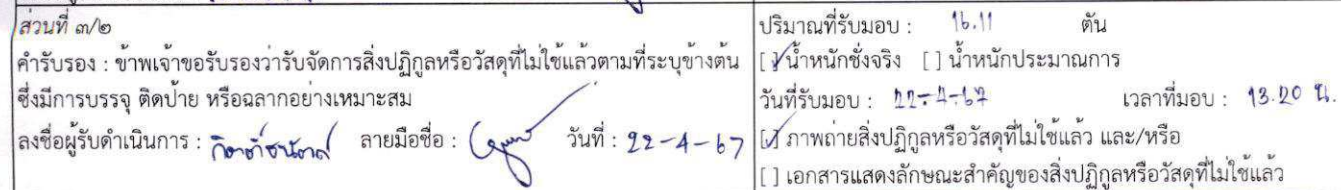 ส่วนที่ ๓/๒
คำรับรอง : ข้าพเจ้าขอรับรองว่ารับจัดการสิ่งปฏิกูลหรือวัสดุที่ไม่ใช้แล้วตามที่ระบุข้างต้น
ซึ่งมีการบรรจุ ติดป้าย หรือฉลากอย่างเหมาะสม
ลงชื่อผู้รับดำเนินการ : ลายมือชื่อ : วันที่ : 22-4-67
ปริมาณที่รับมอบ : 16.11 ตัน
[✓] น้ำหนักชั่งจริง [ ] น้ำหนักประมาณการ
วันที่รับมอบ : 22-4-67 เวลาที่มอบ : 13.20 น.
[✓] ภาพถ่ายสิ่งปฏิกูลหรือวัสดุที่ไม่ใช้แล้ว และ/หรือ
[ ] เอกสารแสดงลักษณะสำคัญของสิ่งปฏิกูลหรือวัสดุที่ไม่ใช้แล้ว